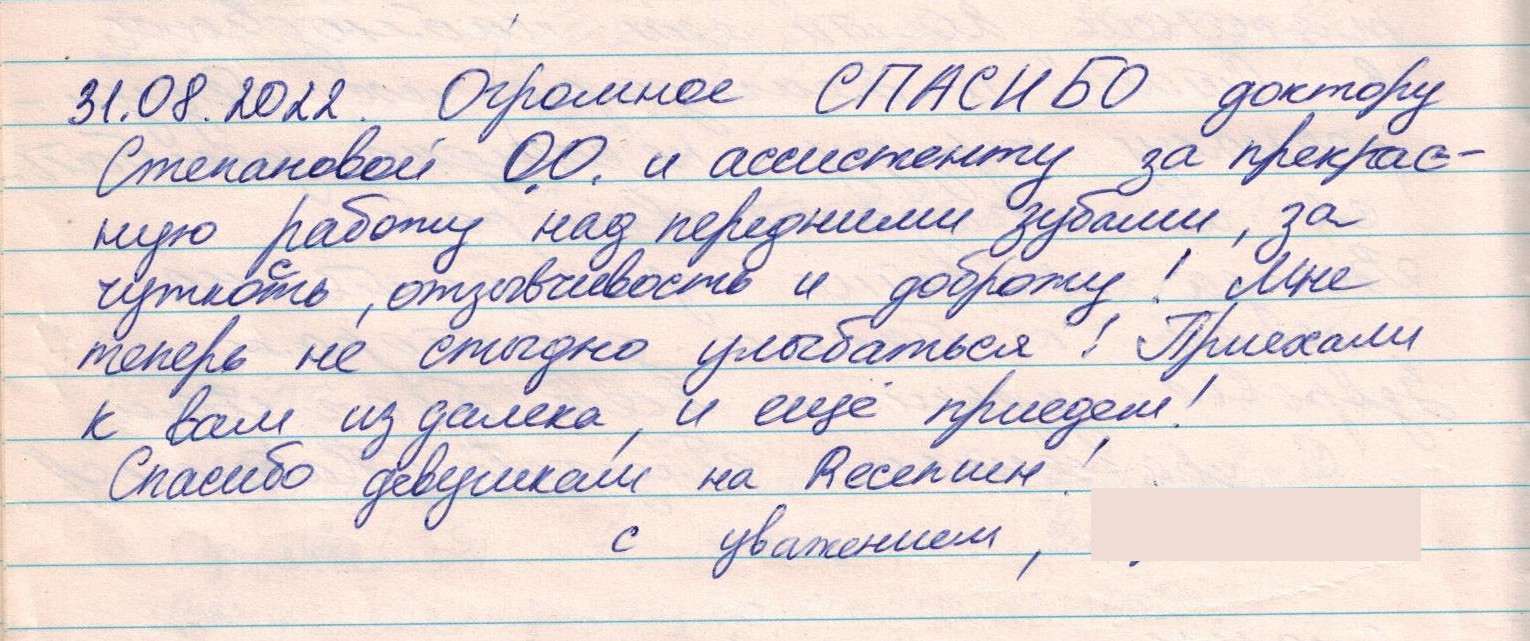 31.08.2022. Огромное СПАСИБО доктору
Степановой О.О. и ассистенту за прекрас-
ную работу над передними зубами, за
чуткость, отзывчивость и доброту! Мне
теперь не стыдно улыбаться! Приехали
к вам из далека, и ещё приедем!
Спасибо девушкам на Ресепшен!
с уважением,